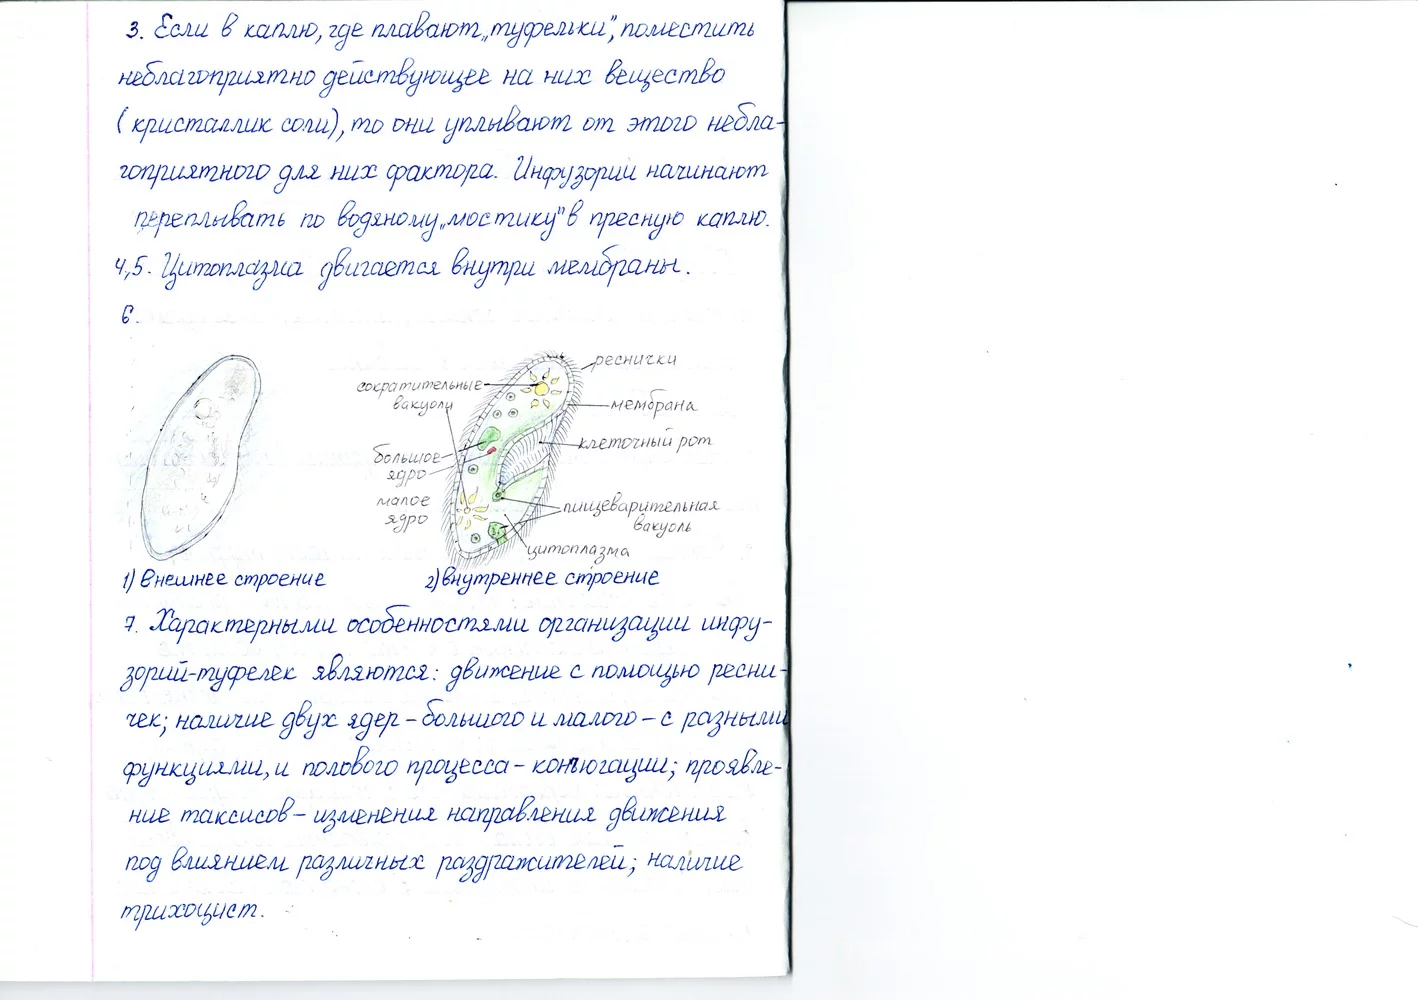 3. Если в каплю, где плавают „туфельки", поместить
неблагоприятно действующее на них вещество
(кристаллик соли), то они уплывают от этого небла-
гоприятного для них фактора. Инфузории начинают
переплывать по водяному „мостику" в пресную каплю.
4,5. Цитоплазма двигается внутри мембраны.
6.
реснички
сократительные
вакуоли
мембрана
клеточный рот
большое
ядро
малое
ядро
пищеварительная
вакуоль
цитоплазма
1) Внешнее строение
2) Внутреннее строение
7. Характерными особенностями организации инфу-
зорий-туфелек являются: движение с помощью ресни-
чек; наличие двух ядер – большого и малого – с разными
функциями, и полового процесса – конъюгации; проявле-
ние таксисов – изменения направления движения
под влиянием различных раздражителей; наличие
трихоцист.